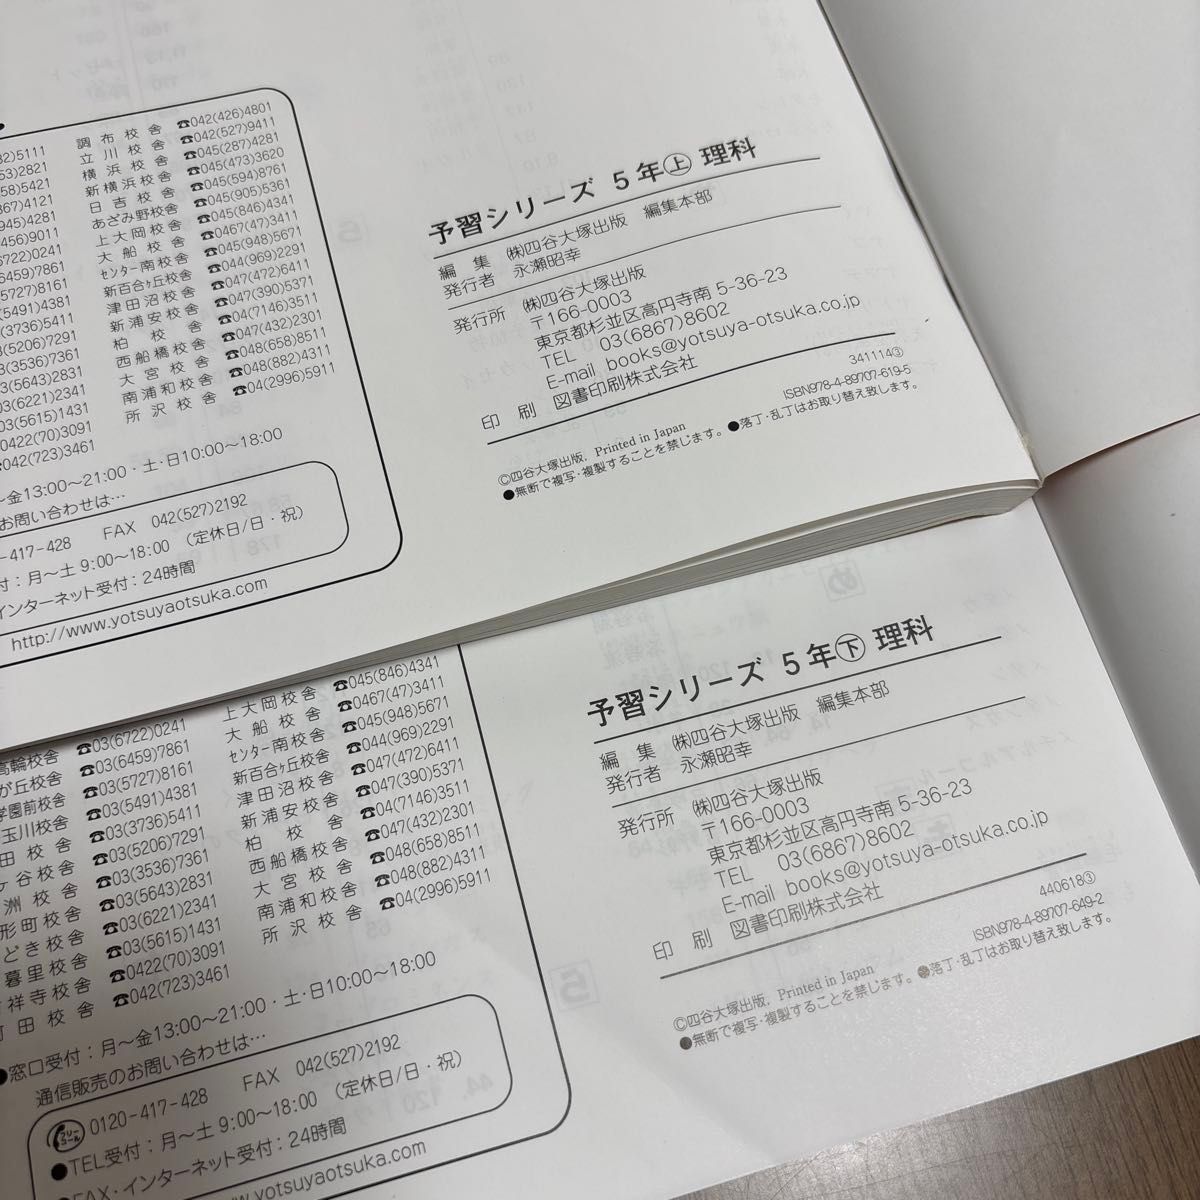 調布校舎 ☎042(426)4801
立川校舎 ☎042(527)9411
横浜校舎 ☎045(287)4281
新横浜校舎 ☎045(473)3620
日吉校舎 ☎045(594)8761
あざみ野校舎 ☎045(905)5361
上大岡校舎 ☎045(846)4341
大船校舎 ☎0467(47)3411
センター南校舎 ☎045(948)5671
新百合ヶ丘校舎 ☎044(969)2291
津田沼校舎 ☎047(472)6411
新浦安校舎 ☎047(390)5371
柏校舎 ☎04(7146)3511
西船橋校舎 ☎047(432)2301
大宮校舎 ☎048(658)8511
南浦和校舎 ☎048(882)4311
所沢校舎 ☎04(2996)5911
32)5111
53)2821
58)5421
367)4121
945)4281
456)9011
6722)0241
6459)7861
5727)8161
5491)4381
3736)5411
5206)7291
3(3536)7361
3(5643)2831
03(6221)2341
03(5615)1431
0422(70)3091
042(723)3461
～金13:00～21:00・土・日10:00～18:00
お問い合わせは…
-417-428 FAX 042(527)2192
付：月～土 9:00～18:00 (定休日/日・祝)
インターネット受付：24時間
http://www.yotsuyaotsuka.com
予習シリーズ 5年㊤ 理科
編集 ㈱四谷大塚出版 編集本部
発行者 永瀬昭幸
発行所 ㈱四谷大塚出版
〒166-0003
東京都杉並区高円寺南 5-36-23
TEL 03(6867)8602
E-mail books@yotsuya-otsuka.co.jp
印刷 図書印刷株式会社
341114③
ISBN978-4-89707-619-5
©四谷大塚出版, Printed in Japan
●無断で複写・複製することを禁じます。●落丁・乱丁はお取り替え致します。
上大岡校舎 ☎045(846)4341
大船校舎 ☎0467(47)3411
センター南校舎 ☎045(948)5671
新百合ヶ丘校舎 ☎044(969)2291
津田沼校舎 ☎047(472)6411
新浦安校舎 ☎047(390)5371
柏校舎 ☎04(7146)3511
西船橋校舎 ☎047(432)2301
大宮校舎 ☎048(658)8511
南浦和校舎 ☎048(882)4311
所沢校舎 ☎04(2996)5911
高輪校舎 ☎03(6722)0241
が丘校舎 ☎03(6459)7861
学園前校舎 ☎03(5727)8161
玉川校舎 ☎03(5491)4381
田校舎 ☎03(3736)5411
ヶ谷校舎 ☎03(5206)7291
洲校舎 ☎03(3536)7361
形町校舎 ☎03(5643)2831
どき校舎 ☎03(6221)2341
暮里校舎 ☎03(5615)1431
祥寺校舎 ☎0422(70)3091
町田校舎 ☎042(723)3461
●窓口受付：月～金13:00～21:00・土・日10:00～18:00
通信販売のお問い合わせは…
フリーコール 0120-417-428 FAX 042(527)2192
●TEL受付：月～土 9:00～18:00 (定休日/日・祝)
●FAX・インターネット受付：24時間
www.yotsuyaotsuka.com
予習シリーズ 5年㊦ 理科
編集 ㈱四谷大塚出版 編集本部
発行者 永瀬昭幸
発行所 ㈱四谷大塚出版
〒166-0003
東京都杉並区高円寺南 5-36-23
TEL 03(6867)8602
E-mail books@yotsuya-otsuka.co.jp
印刷 図書印刷株式会社
440618③
ISBN978-4-89707-649-2
©四谷大塚出版, Printed in Japan
●無断で複写・複製することを禁じます。●落丁・乱丁はお取り替え致します。